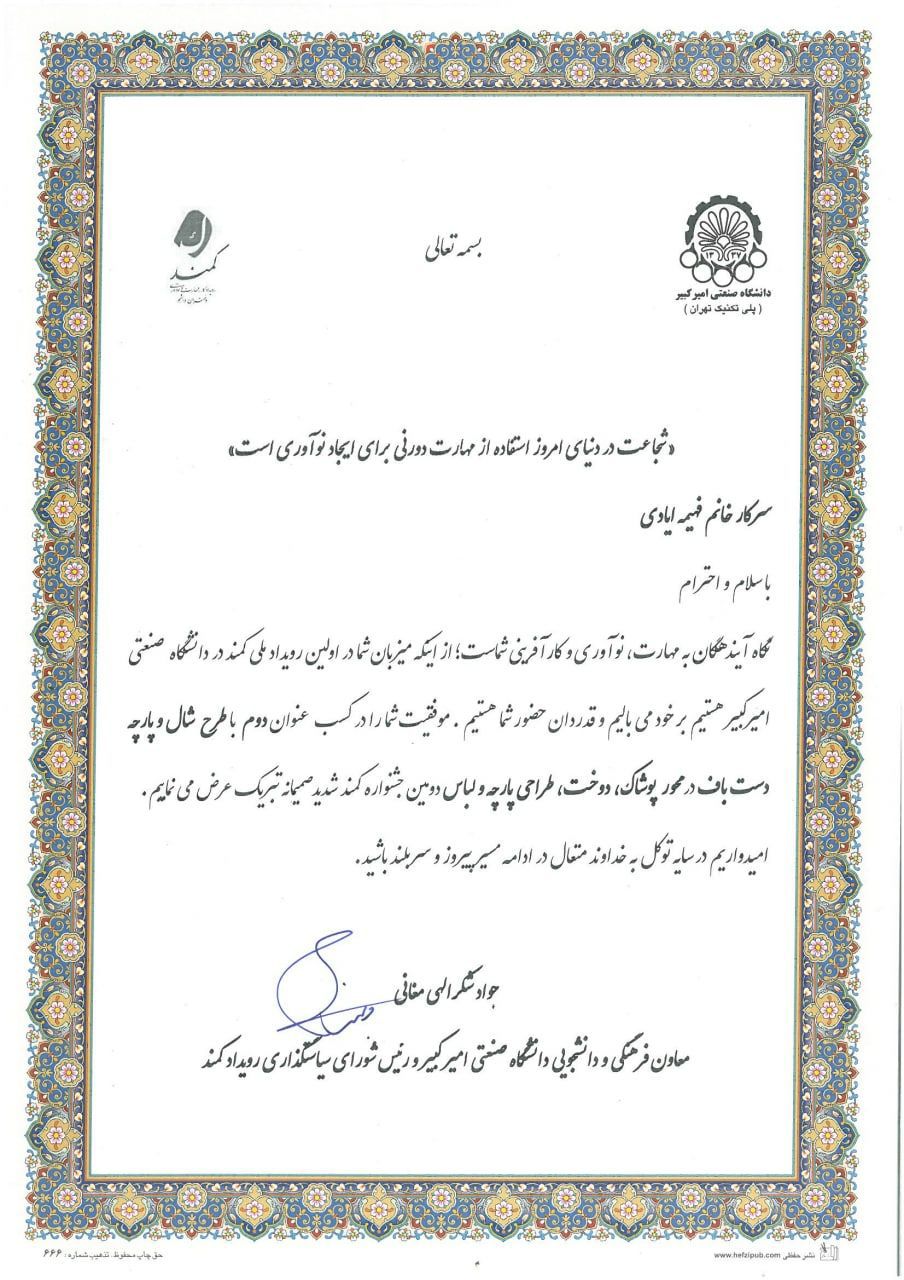 بسمه تعالی
۱۳ ۳۷
دانشگاه صنعتی امیرکبیر
( پلی تکنیک تهران )
کمند
«شجاعت در دنیای امروز استفاده از مهارت دورنی برای ایجاد نوآوری است»
سرکار خانم فهیمه ایادی
با سلام و احترام
نگاه آیندهگان به مهارت، نوآوری و کارآفرینی شماست؛ از اینکه میزبان شما در اولین رویداد ملی کمند در دانشگاه صنعتی
امیرکبیر هستیم بر خود می بالیم و قدردان حضور شما هستیم . موفقیت شما را در کسب عنوان دوم با طرح شال و پارچه
دست باف در محور پوشاک، دوخت، طراحی پارچه و لباس دومین جشنواره کمند شدید صمیمانه تبریک عرض می نماییم .
امیدواریم در سایه توکل به خداوند متعال در ادامه مسیر پیروز و سربلند باشید .
جواد شکرالهی مغانی
معاون فرهنگی و دانشجویی دانشگاه صنعتی امیرکبیر و رئیس شورای سیاستگذاری رویداد کمند
نشر حفظی www.hefzipub.com
حق چاپ محفوظ. تذهیب شماره : ۶۶۶